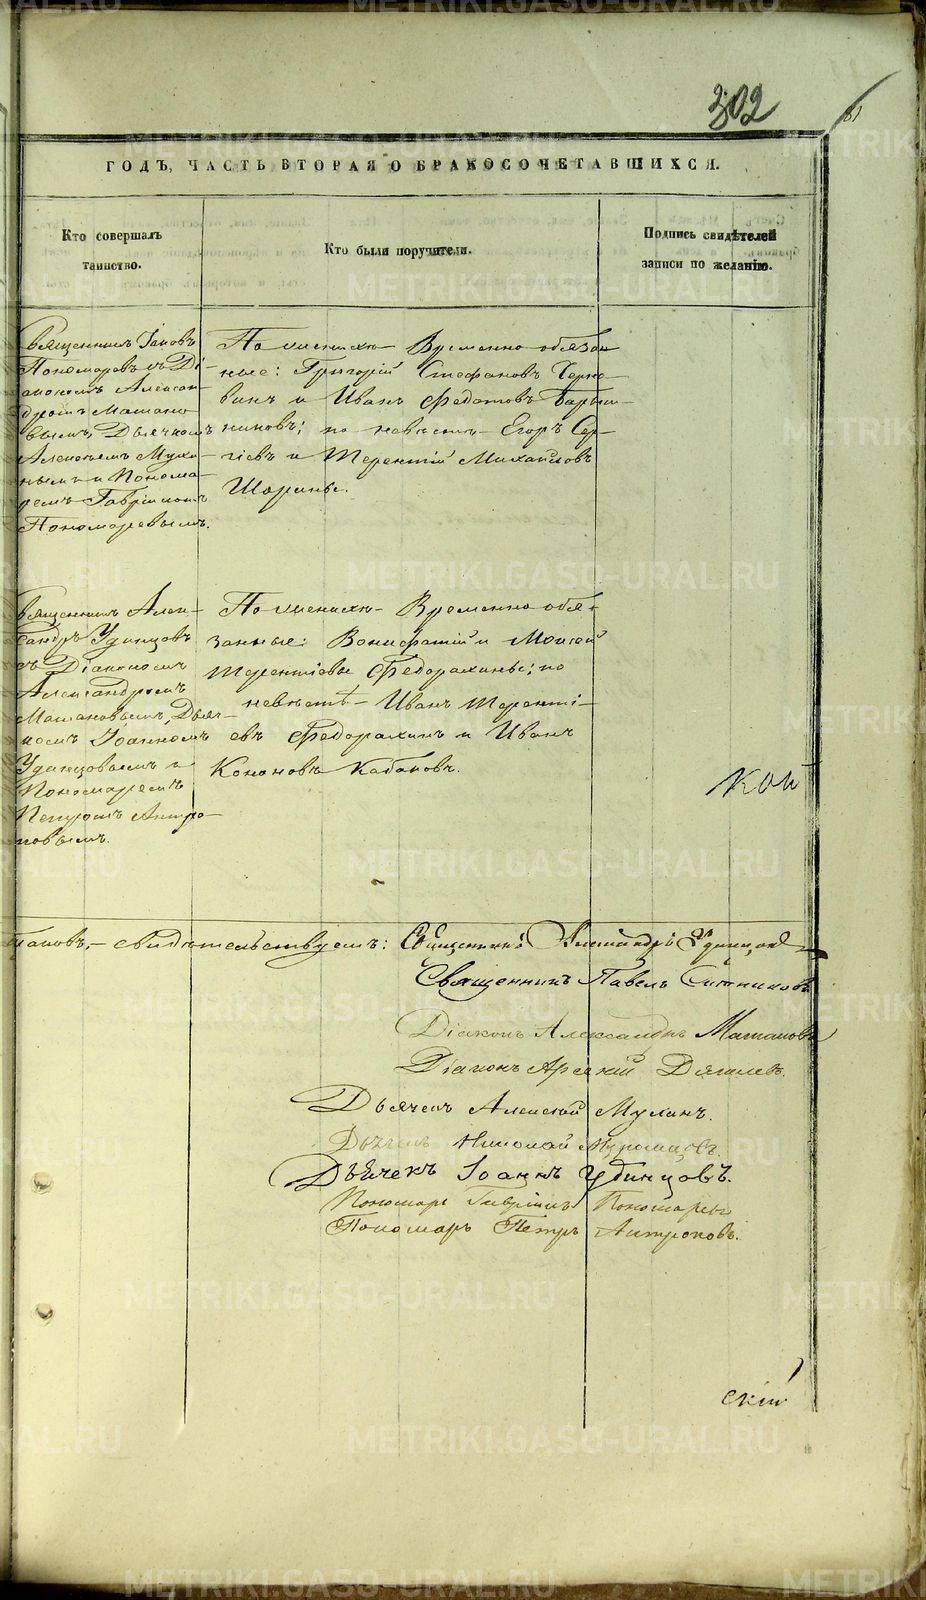 302
81
ГОДЪ, ЧАСТЬ ВТОРАЯ О БРАКОСОЧЕТАВШИХСЯ.
Кто совершалъ
таинство.
Кто были поручители.
Подпись свидѣтелей
записи по желанію.
Священникъ Іаковъ
Пономаревъ съ Ді-
акономъ Алексан-
дромъ Матано-
вымъ, Дьячкомъ
Алексѣемъ Мух
нымъ и Понома-
ремъ Гавріиломъ
Пономаревымъ.
По женихѣ Временно обязан
ные: Григорій Стефановъ Черно-
винъ и Иванъ Федотовъ
никовъ; по невѣстѣ Егоръ Сер-
гіевъ и Терентій Михайловъ
Шорины.
Священникъ Алек-
сандръ Удинцовъ
съ Діакономъ
Александромъ
Матановымъ, Дьяч-
комъ Іоанномъ
Удинцовымъ и
Пономаремъ
Петромъ Антро-
повымъ.
По женихѣ Временно обя-
занные: Вонифатій и Моисей
Терентіевы Федорахины; по
невѣстѣ Иванъ Теренті-
евъ Федорахинъ и Иванъ
Кононовъ Кабановъ.
кой
свидѣтельствуемъ: Священникъ Александръ Удинцовъ
Священникъ Павелъ Ситниковъ
Діаконъ Александръ Матановъ
Діаконъ Арсеній Дягилевъ.
Дьячекъ Алексѣй
Дьячекъ Николай
Дьячекъ Іоаннъ Удинцовъ.
Пономарь Гавріилъ Пономаревъ
Пономарь Петръ Антроповъ.
скій
METRIKI.GASO-URAL.RU